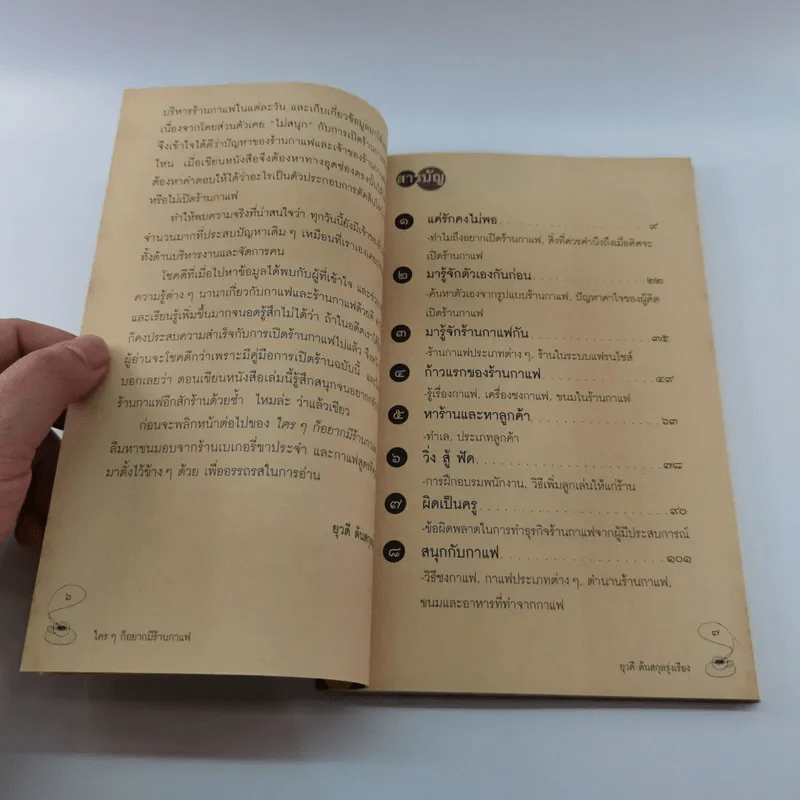 บริหารร้านกาแฟในแต่ละวัน และเก็บเกี่ยวข้อมูลมา
เนื่องจากโดยส่วนตัวเคย "ไม่สนุก" กับการเปิดร้านกาแฟ
จึงเข้าใจได้ดีว่าปัญหาของร้านกาแฟและเจ้าของร้านกาแฟ
ไหน เมื่อเขียนหนังสือจึงต้องหาทางอุดช่องตรงนั้นให้ได้
ต้องหาคำตอบให้ได้ว่าอะไรเป็นตัวประกอบการตัดสินใจ
หรือไม่เปิดร้านกาแฟ
ทำให้พบความจริงที่น่าสนใจว่า ทุกวันนี้ยังมีเจ้าของ
จำนวนมากที่ประสบปัญหาเดิม ๆ เหมือนที่เราเองเคย
ทั้งด้านบริหารงานและจัดการคน
โชคดีที่เมื่อไปหาข้อมูลได้พบกับผู้ที่เข้าใจ และ
ความรู้ต่าง ๆ นานาเกี่ยวกับกาแฟและร้านกาแฟด้วยดี
และเรียนรู้เพิ่มขึ้นมากจนอดรู้สึกไม่ได้ว่า ถ้าในอดีตเรา
ก็คงประสบความสำเร็จกับการเปิดร้านกาแฟไปแล้ว จึง
ผู้อ่านจะโชคดีกว่าเพราะมีคู่มือการเปิดร้านฉบับนี้ และ
บอกเลยว่า ตอนเขียนหนังสือเล่มนี้รู้สึกสนุกจนอยาก
ร้านกาแฟอีกสักร้านด้วยซ้ำ ไหมล่ะ ว่าแล้วเชียว
ก่อนจะพลิกหน้าต่อไปของ ใคร ๆ ก็อยากมีร้านกาแฟ
ลืมหาขนมอบจากร้านเบเกอรี่ขาประจำ และกาแฟสูตร
มาตั้งไว้ข้าง ๆ ด้วย เพื่ออรรถรสในการอ่าน
ยุวดี ต้นสกุล
๖
ใคร ๆ ก็อยากมีร้านกาแฟ
สารบัญ
๑ แค่รักคงไม่พอ ๙
-ทำไมถึงอยากเปิดร้านกาแฟ, สิ่งที่ควรคำนึงถึงเมื่อคิดจะ
เปิดร้านกาแฟ
๒ มารู้จักตัวเองกันก่อน ๒๒
-ค้นหาตัวเองจากรูปแบบร้านกาแฟ, ปัญหาคาใจของผู้คิด
เปิดร้านกาแฟ
๓ มารู้จักร้านกาแฟกัน ๓๕
-ร้านกาแฟประเภทต่าง ๆ, ร้านในระบบแฟรนไชส์
๔ ก้าวแรกของร้านกาแฟ ๔๙
-รู้เรื่องกาแฟ, เครื่องชงกาแฟ, ขนมในร้านกาแฟ
๕ หาร้านและหาลูกค้า ๖๓
-ทำเล, ประเภทลูกค้า
๖ วิ่ง สู้ ฟัด ๗๘
-การฝึกอบรมพนักงาน, วิธีเพิ่มลูกเล่นให้แก่ร้าน
๗ ผิดเป็นครู ๙๐
-ข้อผิดพลาดในการทำธุรกิจร้านกาแฟจากผู้มีประสบการณ์
๘ สนุกกับกาแฟ ๑๐๑
-วิธีชงกาแฟ, กาแฟประเภทต่าง ๆ, ตำนานร้านกาแฟ,
ขนมและอาหารที่ทำจากกาแฟ
๗
ยุวดี ต้นสกุลรุ่งเรือง